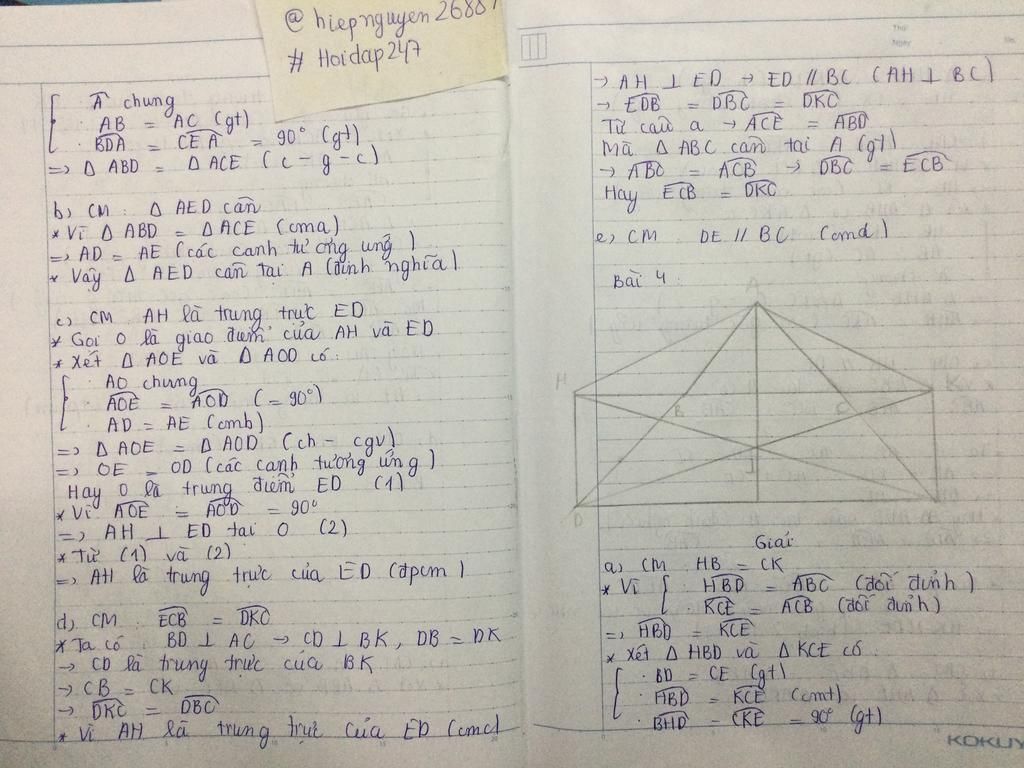 @ hiepnguyen26887
# Hoidap247
Â chung
AB = AC (gt)
BDA = CEA = 90° (gt)
=> Δ ABD = Δ ACE (c - g - c)
b, CM : Δ AED cân
* Vì Δ ABD = Δ ACE (cma)
=> AD = AE (các cạnh tương ứng)
* Vậy Δ AED cân tại A (định nghĩa)
c, CM AH là trung trực ED
* Gọi O là giao điểm của AH và ED
* Xét Δ AOE và Δ AOD có:
AO chung
AOE = AOD (= 90°)
AD = AE (cmb)
=> Δ AOE = Δ AOD (ch - cgv)
=> OE = OD (các cạnh tương ứng)
Hay O là trung điểm ED (1)
* Vì AOE = AOD = 90°
=> AH ⊥ ED tại O (2)
* Từ (1) và (2)
=> AH là trung trực của ED (đpcm)
d, CM ECB = DKC
* Ta có BD ⊥ AC → CD ⊥ BK, DB = DK
→ CD là trung trực của BK
→ CB = CK
→ DKC = DBC
* Vì AH là trung trực của ED (cmc)
→ AH ⊥ ED → ED // BC (AH ⊥ BC)
→ EDB = DBC = DKC
Từ câu a → ACE = ABD
Mà Δ ABC cân tại A (gt)
→ ABC = ACB → DBC = ECB
Hay ECB = DKC
e, CM DE // BC (cmd)
Bài 4 :
A
H
K
B
C
I
D
Giải
a, CM HB = CK
* Vì HBD = ABC (đối đỉnh)
KCE = ACB (đối đỉnh)
=> HBD = KCE
* Xét Δ HBD và Δ KCE có :
BD = CE (gt)
HBD = KCE (cmt)
BHD = CKE = 90° (gt)
KOKUY